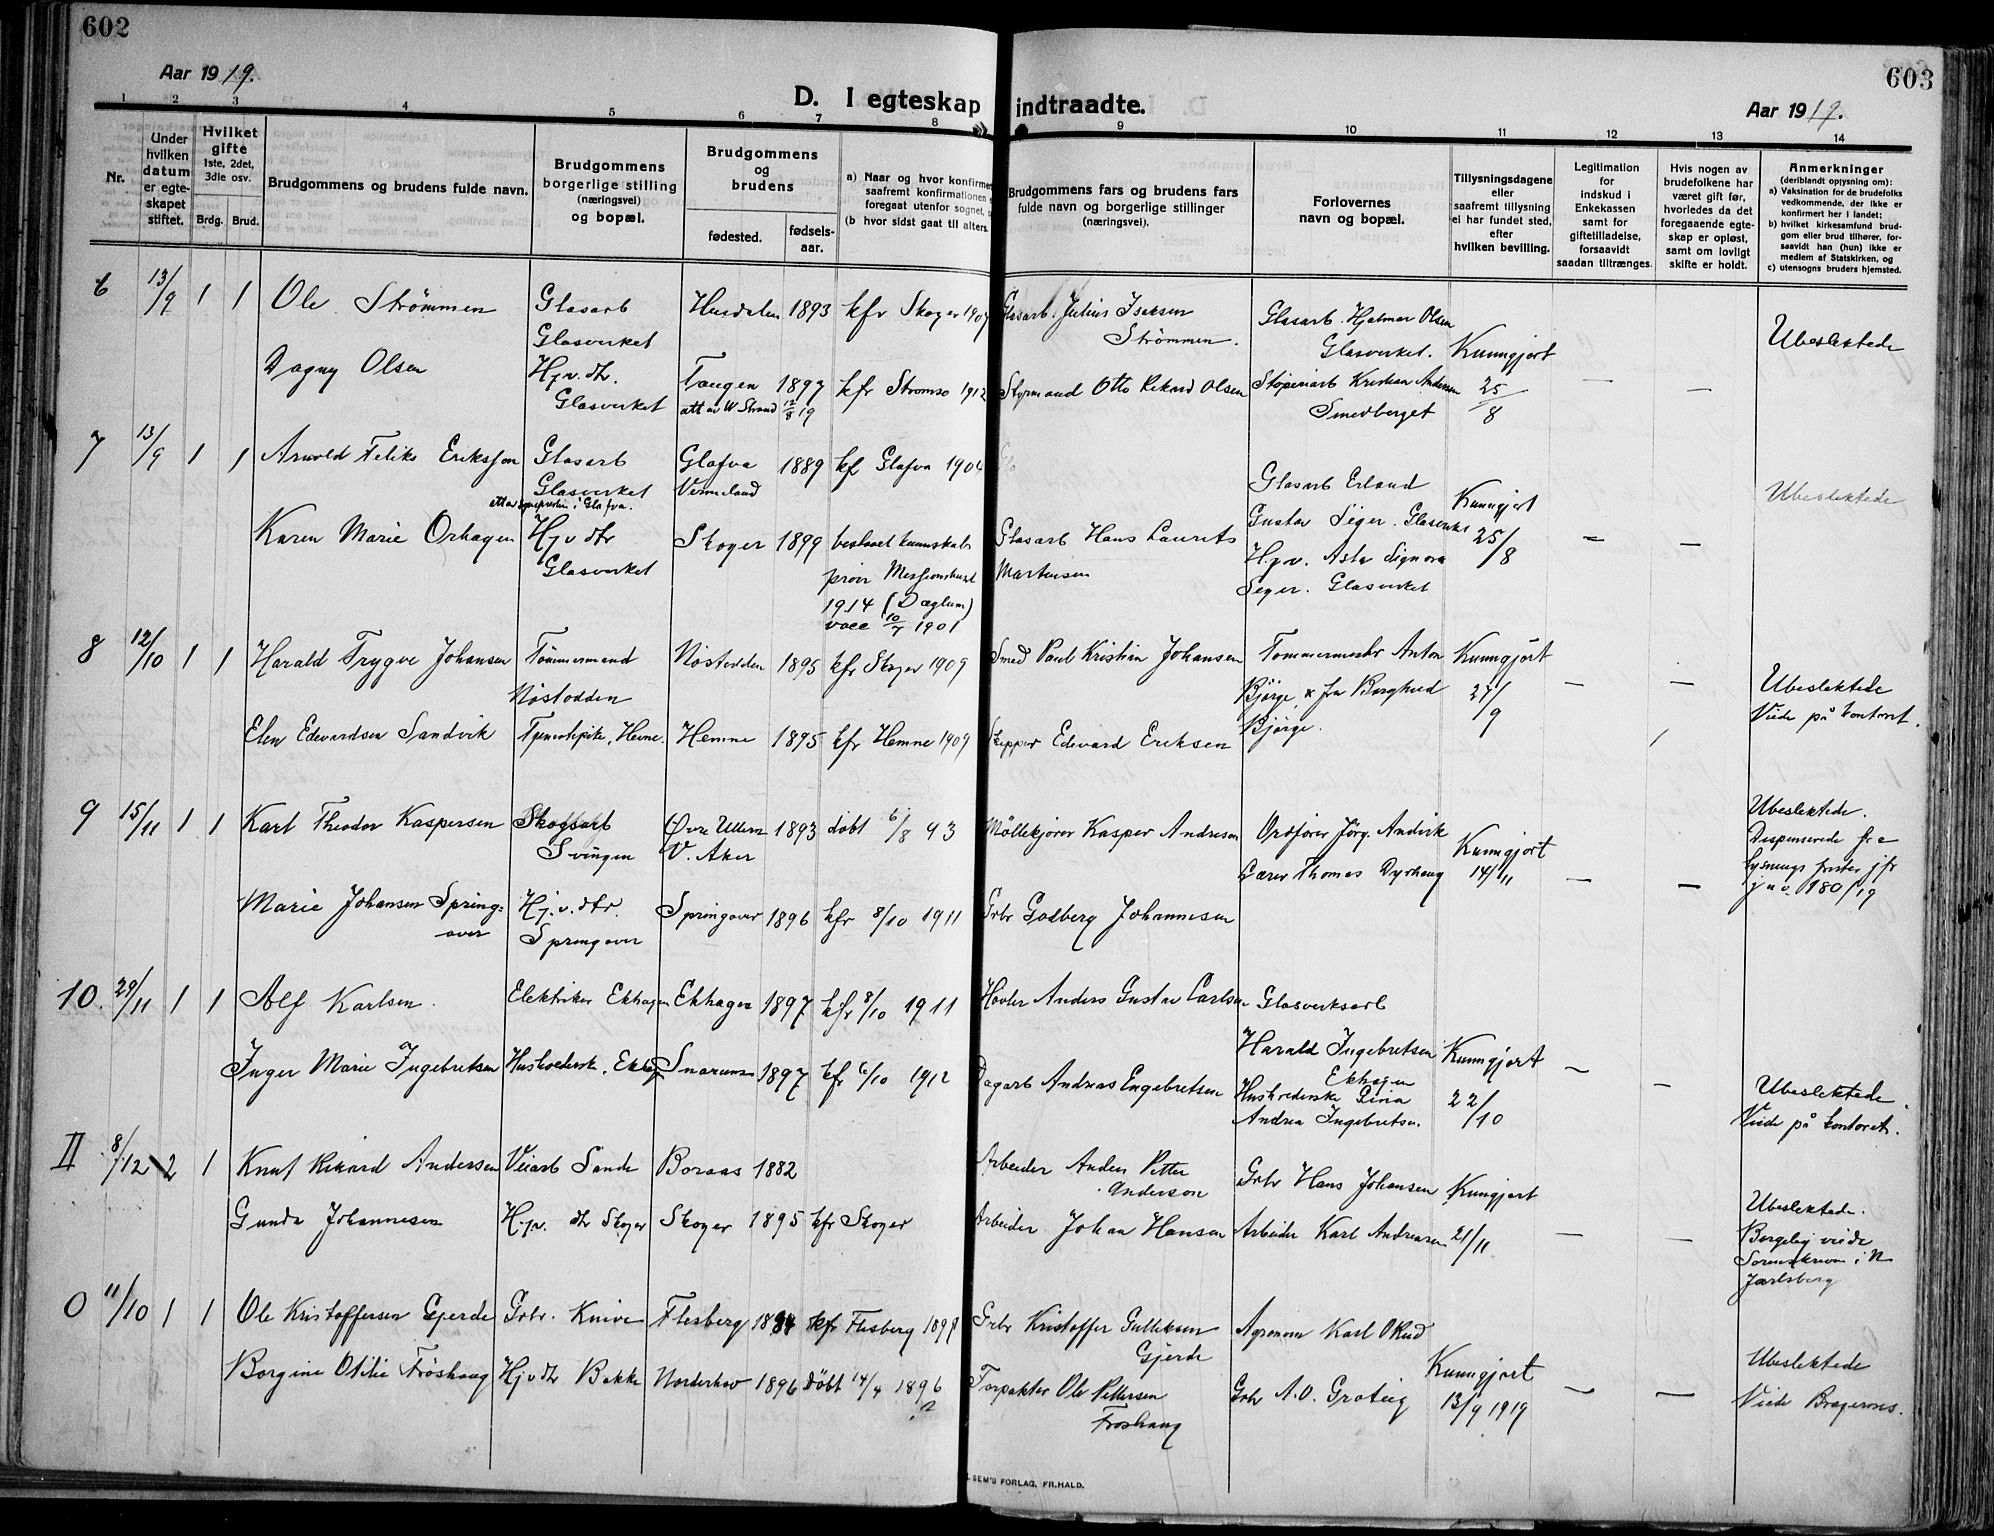 602
Aar 1919.
D. I egteskap indtraadte.
603
Aar 1919.
1 2 3 4 5 6 7 8 9 10 11 12 13 14
Nr.
Under hvilken datum er egteskapet stiftet.
Hvilket gifte
1ste, 2det, 3die osv.
Brdg. Brud.
Brudgommens og brudens fulde navn.
Brudgommens borgerlige stilling (næringsvei) og bopæl.
Brudgommens og brudens
fødested. fødselsaar.
a) Naar og hvor konfirmer
saafremt konfirmationen
foregaat utenfor sognet,
(b hvor sidst gaat til alters.
Brudgommens fars og brudens fars
fulde navn og borgerlige stillinger
(næringsvei).
Forlovernes
navn og bopæl.
Tillysningsdagene
eller
saafremt tillysning
ei har fundet sted,
efter
hvilken bevilling.
Legitimation
for
indskud i
Enkekassen
samt for
giftetilladelse,
forsaavidt
saadan tiltrænges.
Hvis nogen av
brudefolkene har
været gift før,
hvorledes da det
foregaaende egte-
skap er opløst,
samt om lovligt
skifte er holdt.
Anmerkninger
(deriblandt opjysning om):
a) Vaksination for de brudefolks
vedkommende, der ikke er
konfirmert her i landet;
b) hvilket kirkesamfund brud-
gom eller brud tilhører, for-
saavidt han (hun) ikke er
medlem af Statskirken, og
c) utensogns bruders hjemsted.
6 13/9 1 1 Ole Strømmen Glasarb Glasverket 1893 kfr Skoger Glasarb. Julius Isaksen Strømmen. Glasarb. Hjalmar Olsen Glasverket. Kunngjort 25/8 Ubeslektede
Dagny Olsen Hj.v.dtr. Glasverket Tangen 1897 kfr Strømsø 1912 Styrmand Otto Rikard Olsen Støperiarb Kristian Andersen Smedberget
att av W Strand 12/8 19
7 13/9 1 1 Arnold Feliks Eriksson Glasarb Glasverket Glafva Vermeland 1889 kf Glafva 1904 Glasarb Erland Gustav Seger. Glasverket Kunngjort 25/8 Ubeslektede
Karen Marie Orhagen Hj v dtr Glasverket Skoger 1899 bestaaet kunnskabs prøve Missionshuset 1914 (Døglum) vacc 10/7 1901 Glasarb Hans Laurits Martinsen Hj.v. Asta Signora Seger. Glasverket
8 12/10 1 1 Harald Trygve Johansen Tømmermand Nøstodden Nøstodden 1895 kfr Skoger 1909 Smed Paul Kristian Johansen Tømmermestr Anton Bjørge, Kunngjort 27/9 Ubeslektede Viede på kontoret.
Elen Edevardsen Sandvik Hemne 1895 kfr Hemne 1909 Skipper Edevard Eriksen Bjørge.
9 15/11 1 1 Karl Theodor Kaspersen Skogsarb Svingen Øvre Ullern V. Aker 1893 døbt 6/8 93 Møllekjører Kasper Andresen Ordfører Jørg. Andvik Kunngjort 14/11 Ubeslektede. Dispenserede fra lysnings frister jfr jnr. 180/19
Marie Johansen Springover Hj.v.dtr. Springover Springover 1896 kfr 8/10 1911 Grbr Godberg Johannesen Lærer Thomas Dyrhaug
10. 29/11 1 1 Alf Karlsen. Elektriker Ekhagen Ekhagen 1897 kfr 8/10 1911 Høvler Anders Gustav Carlsen Glasverksarb Harald Ingebretsen Ekhagen Kunngjort 22/10 Ubeslektede. Viede på kontoret.
Inger Marie Ingebretsen Snarum 1897 kf 6/10 1912 Dagarb Andreas Engebretsen Andrea Ingebretsen.
II 8/12 2 1 Knut Rikard Andersen Veiarb Sande Boraas 1882 Arbeider Anders Petter Anderson Grbr Hans Johansen Kungjort 21/11 Ubeslektede. Borgelig viede Sorenskriveren i N Jarlsberg
Gunda Johannesen Hj.v. dtr Skoger Skoger 1895 kfr Skoger Arbeider Johan Hansen Arbeider Karl Andreasen
0 11/10 1 1 Ole Kristoffersen Gjerde Grbr. Knive Flesberg 1884 kfr Flesberg Grbr Kristoffer Gulliksen Gjerde Agronom Karl Økud Kunngjort 13/9 1919 Ubeslektede Viede Bragernes.
Borgine Otilie Frøshaug Hj v dtr Bakke Norderhov 1896 Døbt 14/4 1896 ? Forpakter Ole Pettersen Frøshaug Grbr A.O. Groteig
SEM'S FORLAG, FR.HALD.